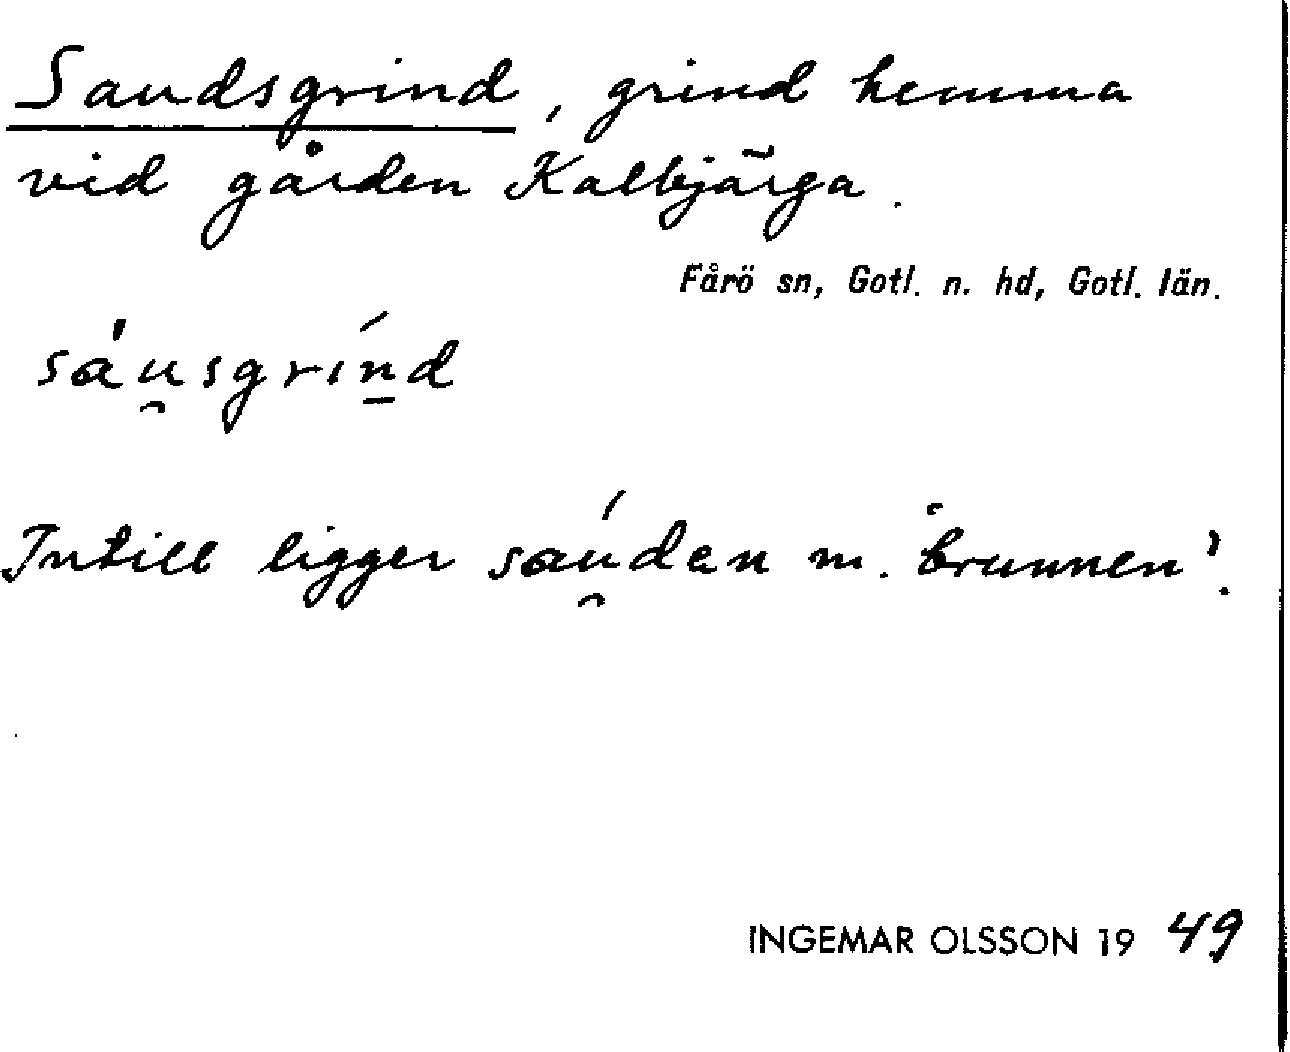 Saudsgrind, grind hemma
vid gården Kalbjärga.
Fårö sn, Gotl. n. hd, Gotl. län.
sáu̯sgrín̲d
Intill ligger sáu̯den m. 'brunnen'.
INGEMAR OLSSON 19 49